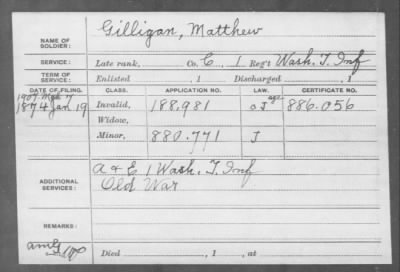 NAME OF SOLDIER: Gilligan, Matthew
SERVICE: Late rank, Co. E, 1 Reg't Wash. T. Inf
TERM OF SERVICE: Enlisted , 1 Discharged , 1
DATE OF FILING. CLASS. APPLICATION NO. LAW. CERTIFICATE NO.
1907
1874 Jan 19 Invalid, 188.981 age 886.056
Widow,
Minor, 880.771 J
ADDITIONAL SERVICES: A & E 1 Wash. T. Inf
Old War
REMARKS:
Died , 1 , at